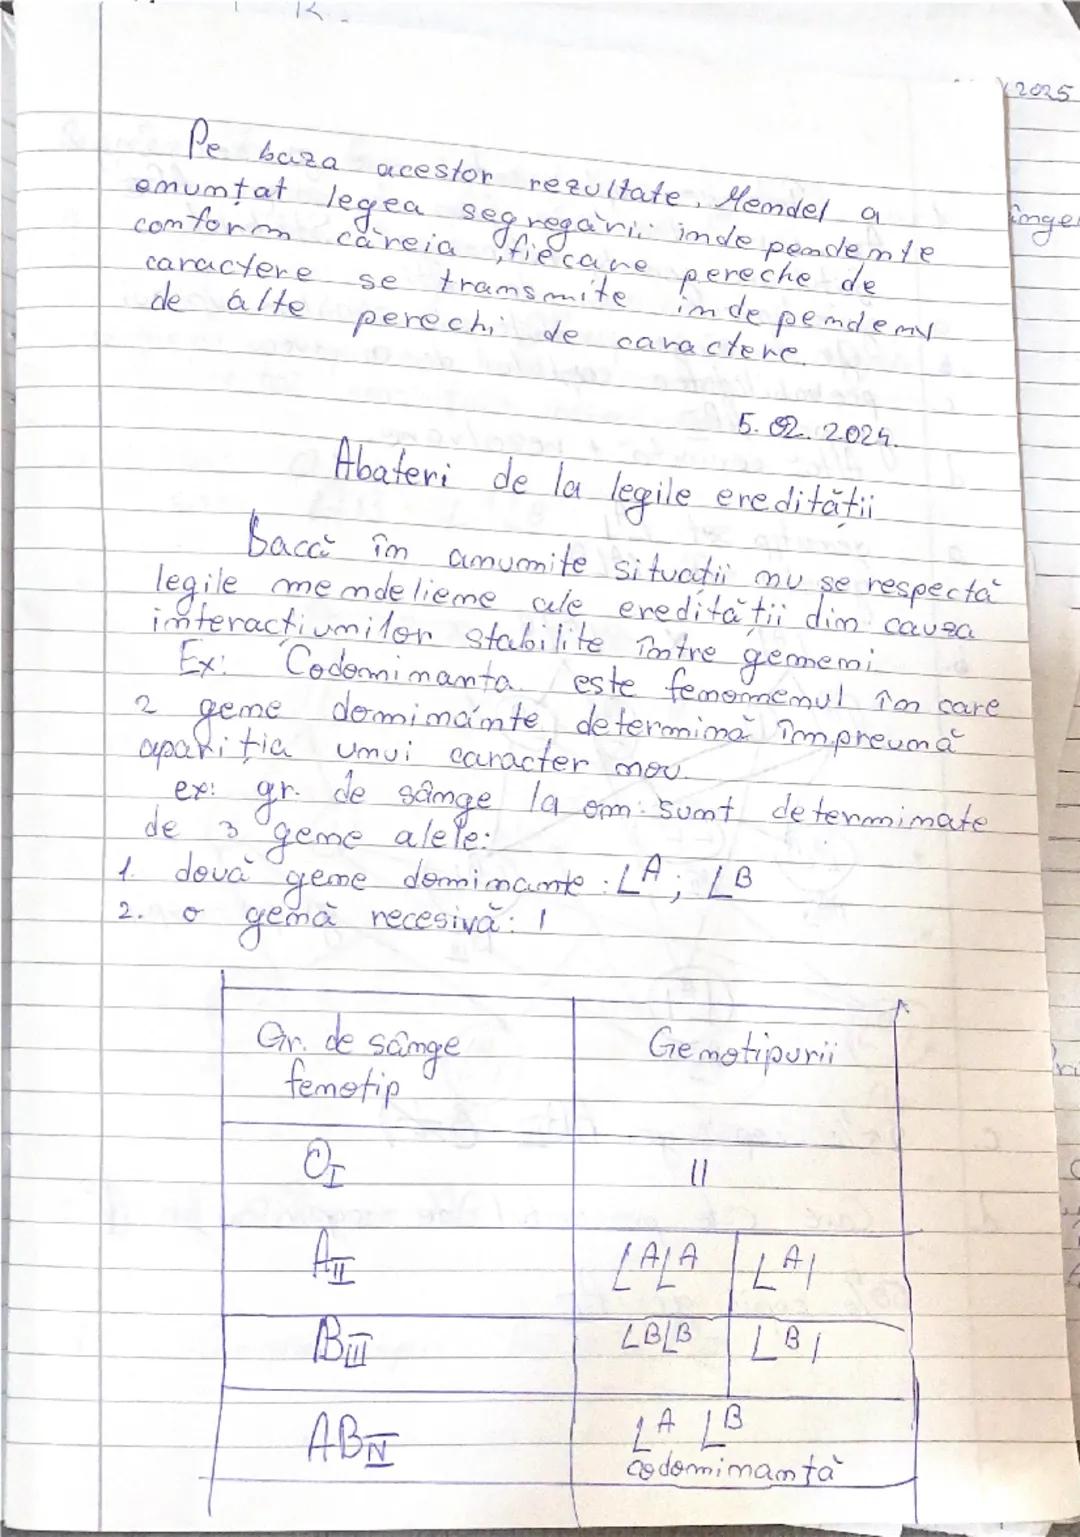 2025
Pe baza acestor rezultate, Mendel a
enumțat legea segregării independente
conform căreia, fiecare pereche de
caractere se transmite independent
de alte perechi de caractere.
înge
5.02.2024.
Abateri de la legile eredității
Dacă în anumite situații nu se respectă
legile mendeliene ale eredității din cauza
interacțiunilor stabilite între genemi
Ex: Codominanta este fenomenul în care
2 gene dominante determină împreună
apariția unui caracter nou.
ex: gr. de sânge la om sunt determinate
de 3 gene alele:
1. două gene dominante: L^A; L^B
2. o genă recesivă: l
Gr. de sânge Genotipurii
fenotip
O_I ll
A_II L^A L^A L^A l
B_III L^B L^B L^B l
AB_IV L^A L^B
codominanță